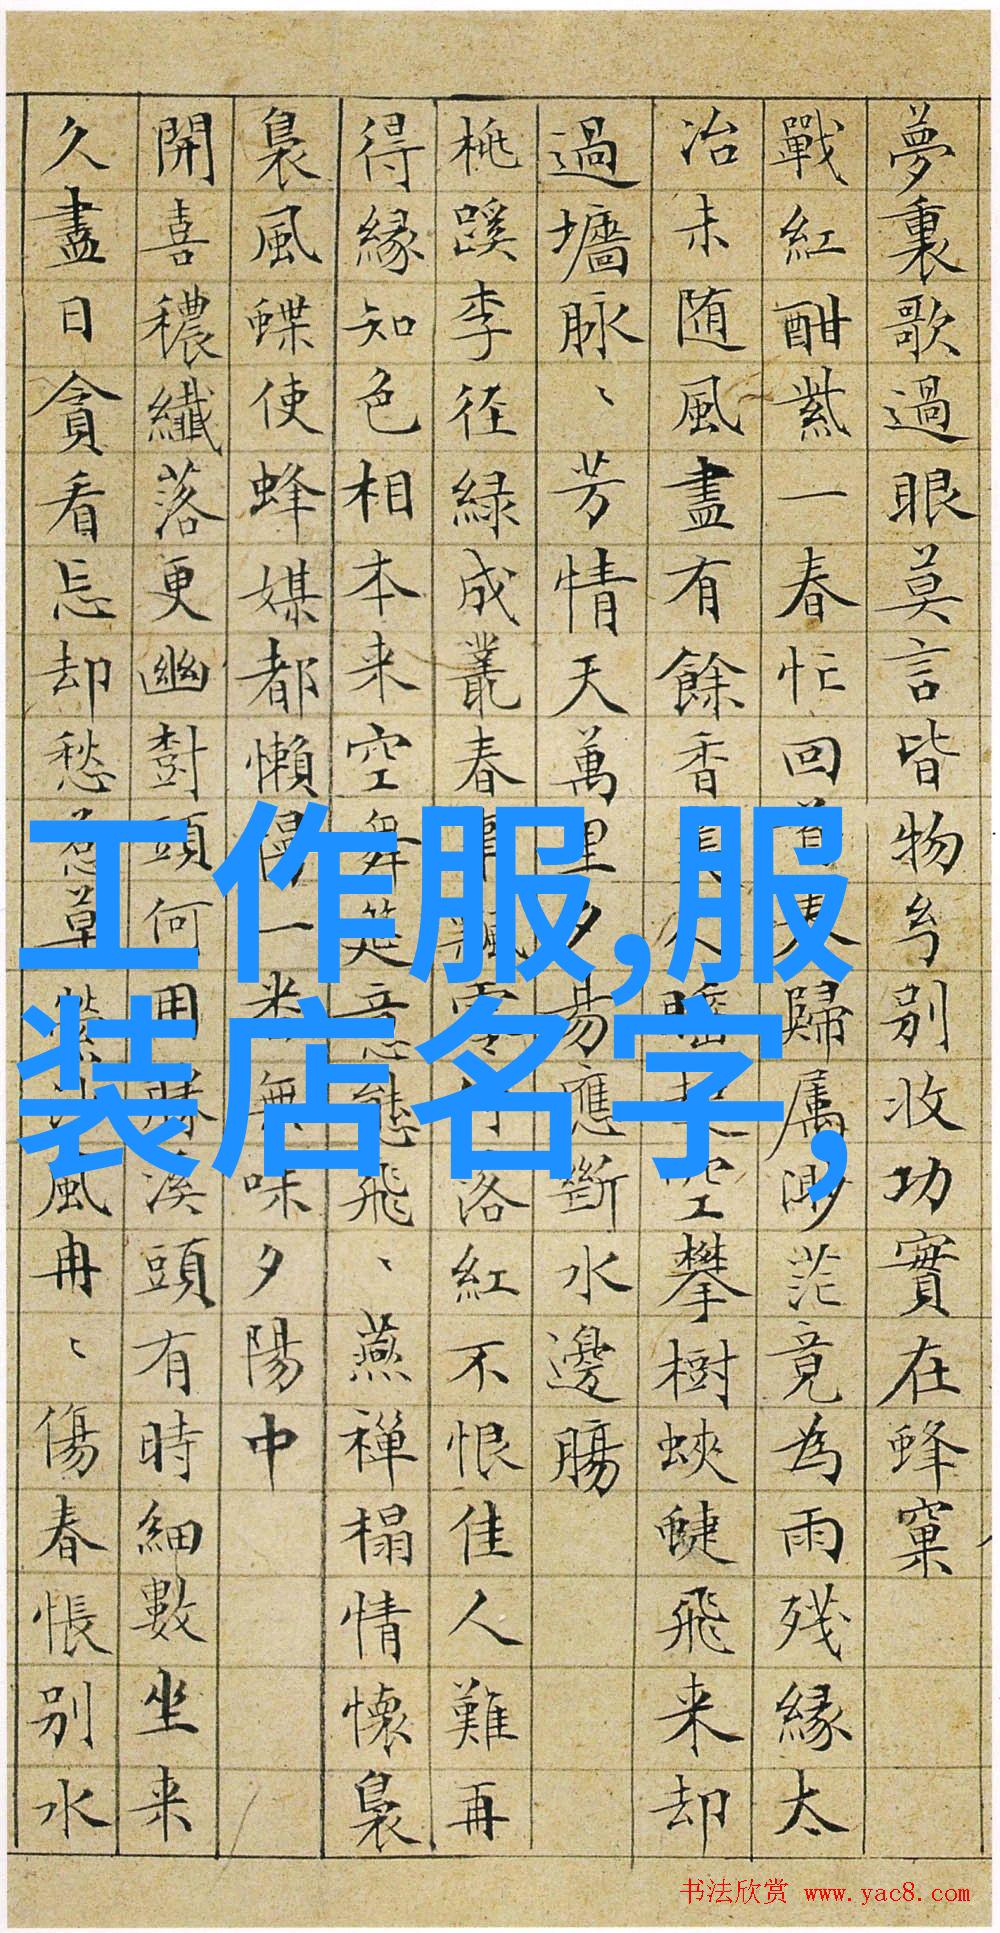 夢裏歌過眼莫言皆物兮别收功實在蜂窠
戰紅酣紫一春忙回首春歸属渺茫竟為雨残縁太
冶未随風盡有餘香美人空攀樹蛺蜨飛来却
過墻脉、芳情天萬里夕易應斷水邊腸
桃蹊李径緑成叢春飄零落紅不恨佳人難再
得縁知色相本来空舞筵意態飛、燕禅榻情懷裊
裊風蝶使蜂媒都懶一無味夕陽中
開喜穠纖落更幽對頭何用溪頭有時細數坐来
久盡日貪看忘却愁草風冉、傷春悵别水
工作服,服
装店名字,
书法欣赏 www.yac8.com